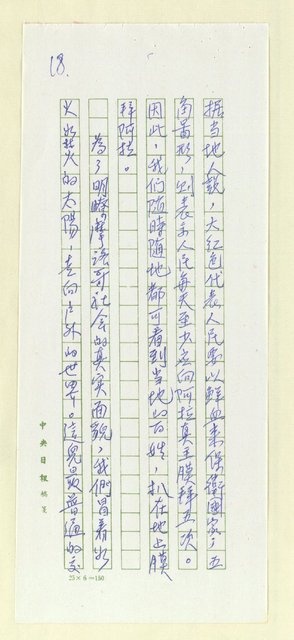 18.
据当地人說，大紅色代表人民要以鮮血来保衛國家；五
角星形，則表示人民每天至少应向阿拉真主膜拜五次。
因此，我們随時随地都可看到当地的百姓，扒在地上膜
拜阿拉。
為了明瞭摩洛哥社会的真实面貌，我們冒着如
火燃火的太陽，走向户外的世界。這兒最普通的交
中央日報稿箋
25×6＝150